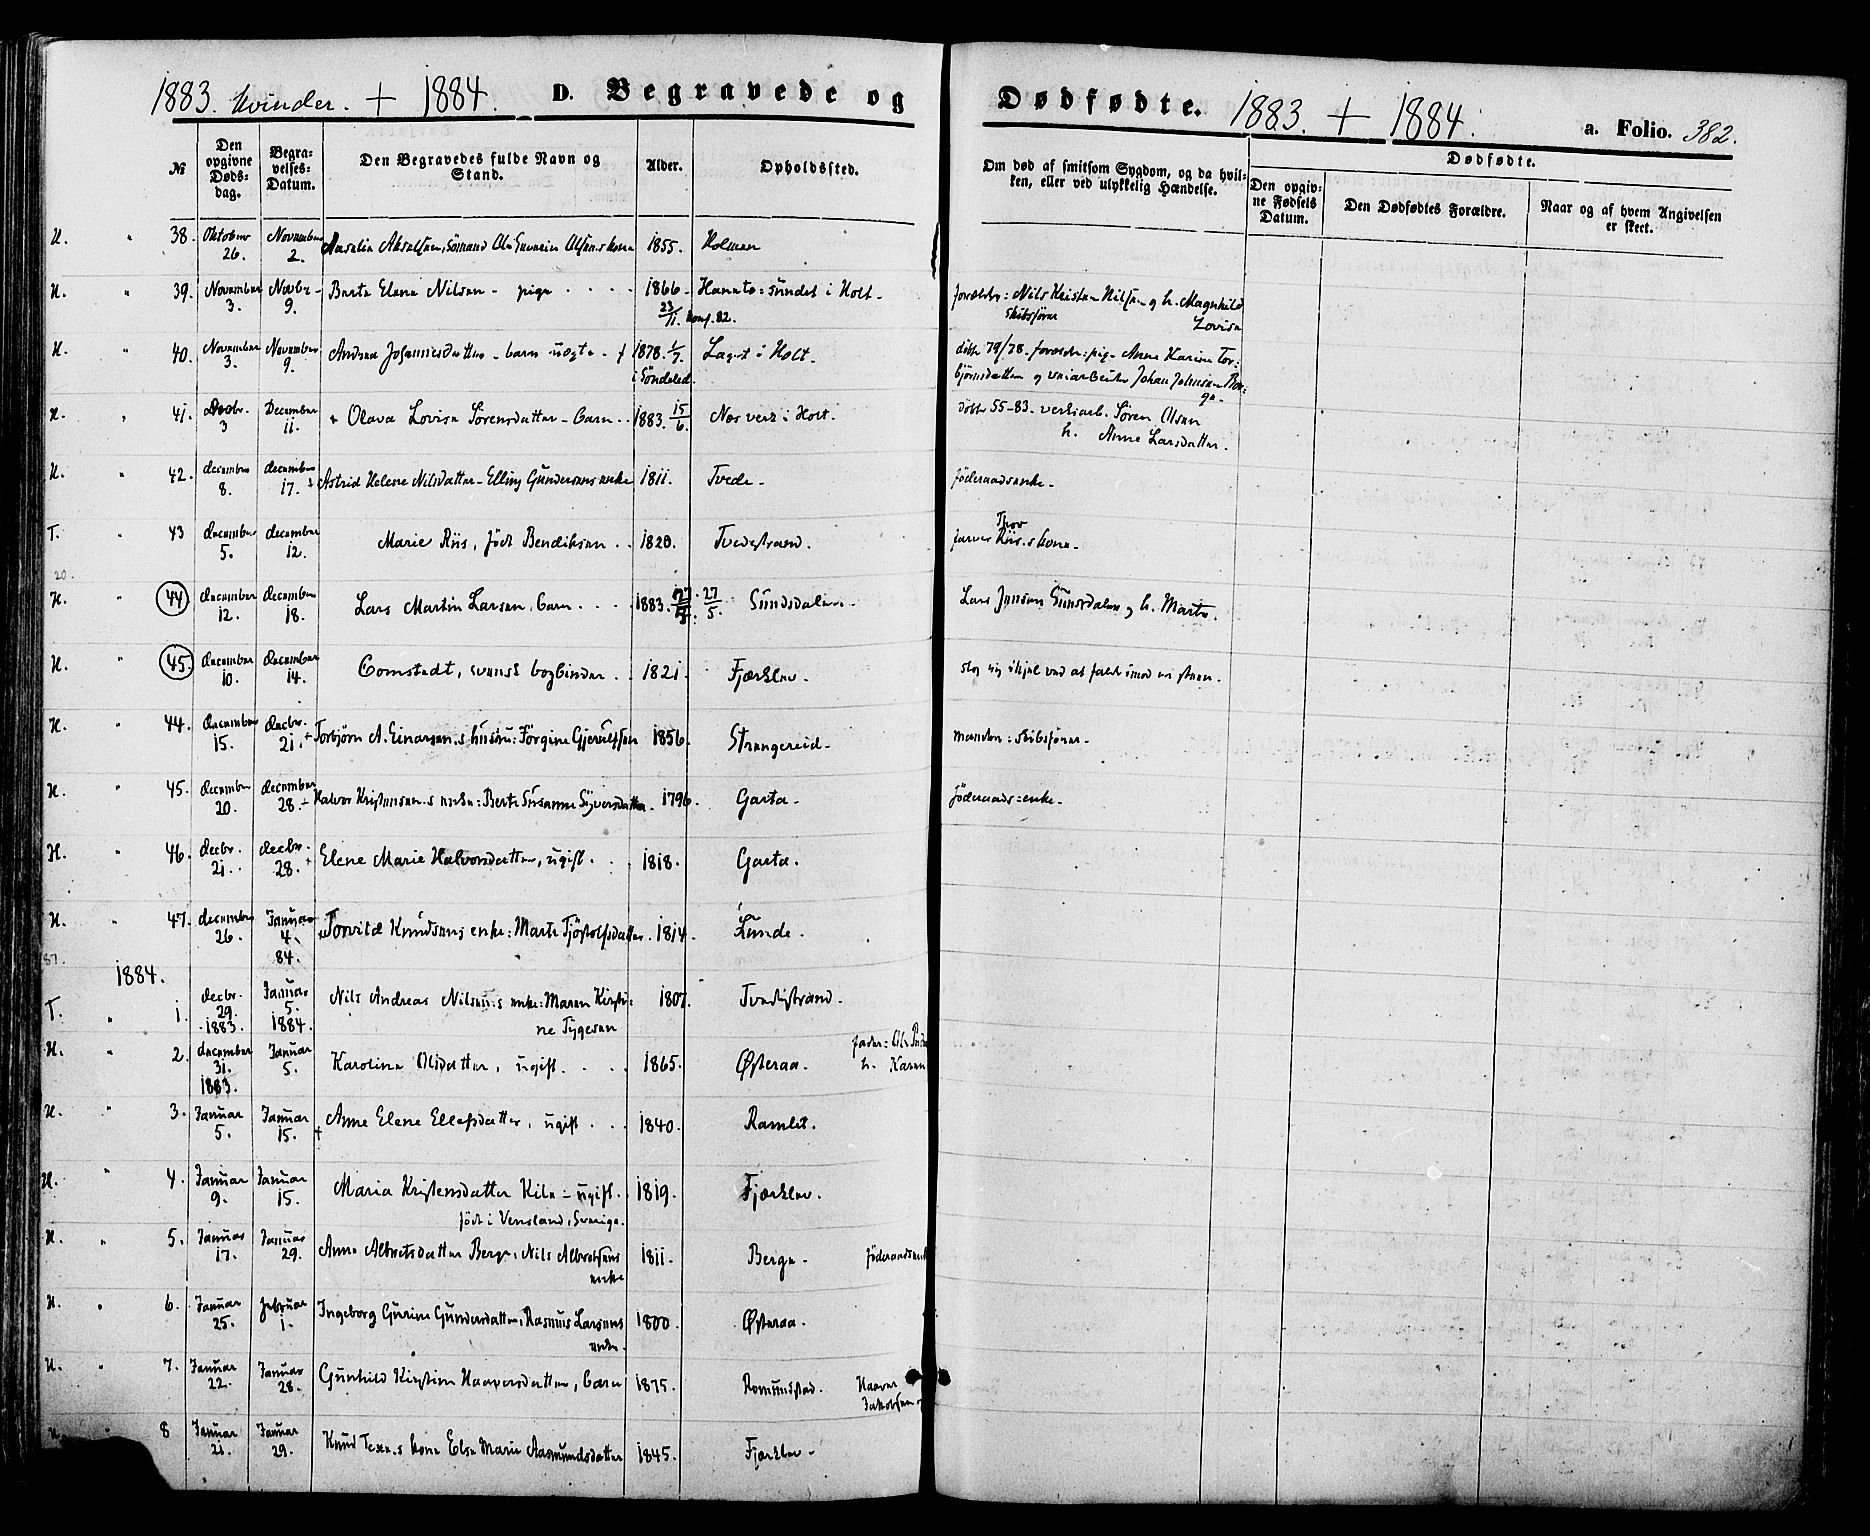 1883. Kvinder. + 1884. D. Begravede og Dødfødte. 1883. + 1884. a. Folio. 382.
№ Den opgivne Døds-dag. Begra-velses-Datum. Den Begravedes fulde Navn og Stand. Alder. Opholdssted. Om død af smitsom Sygdom, og da hvil-ken, eller ved ulykkelig Hændelse. Dødfødte.
Den opgiv-ne Fødsels Datum. Den Dødfødtes Forældre. Naar og af hvem Angivelsen er skeet.
H. " 38. Oktober 26. November 2. Akselsen, Sømand Ole Olsens kone 1855. Holmen
H. " 39. November 3. Novbr. 9. Berte Elene Nilsen - pige 1866 23/11. konf. 82. sundet i Holt. forældre: Nils Kristen Nilsen og h. Magnhild Lovise
skibsfører
H. " 40. November 3. November 9. Andrea Johannesdatter - barn uægte 1878. 1/7. i Søndeled. Laget i Holt. døbt 79/78. forældre: pige Anne Karine Tor-
bjørnsdatter og Johan Johnsen
H. " 41. Decbr. 3 December 11. + Olava Lovise Sørensdatter - barn 1883. 15/6. Næs verk i Holt. døbt 55-83. verksarb. Søren Olsen
h. Anne Larsdatter.
H. " 42. december 8. december 17. + Astrid Helene Nilsdatter - Elling Gundersens enke 1811. Tvede. føderaadsenke.
T. " 43 december 5. december 12. Marie Riis, født Bendiksen 1820. Tvedestrand. farver Thor Riis.s kone.
20.
H. " 44 december 12. december 18. Lars Martin Larsen, barn 1883. 27/5. 27/5. Sundsdalen. Lars Jensen Sundsdalen og h. Marte.
H. " 45. december 10. december 14. Comstedt, svensk bogbinder 1821. Fjærklev. slog sig ihjel ved at falde imod en sten.
H. " 44. december 15. decbr. 21. + Torbjørn A. Einarsen.s hustru: Jørgine Gjerulfsen 1856. Strengereid. manden: skibsfører.
H. " 45. december 20. december 28. + Halvor Kristensen.s enke: Berte Susanne Syversdatter. 1796. Garta. føderaads=enke.
H. " 46. decbr. 21. decbr. 28. + Elene Marie Halvorsdatter, ugift. 1818. Garta.
H. " 47. december 26. Januar 4. 84. Knudsens enke: Marte Tjøstolfsdatter. 1814. Lunde.
87.
1884.
T. " 1. decbr. 29. 1883. Januar 5. 1884. Nils Andreas Nilsen.s enke: Maren Kirsti-
ne Tygesen 1807. Tvedestrand.
H. " 2. december 31. 1883. Januar 5. Karoline Olsdatter, ugift. 1865. Østeraa. fader: Ole
h. Karen
H. " 3. Januar 5. Januar 15. + Anne Elene Ellefsdatter, ugift. 1840. Ramlet.
H. " 4. Januar 9. Januar 15. Maria Kristensdatter Kila - ugift.
født i Vensland, Sverige. 1819. Fjærklev.
H. " 5. Januar 17. Januar 29. Anne Albretsdatter Berge, Nils Albretsens
enke 1811. Berge. føderaadsenke
H. " 6. Januar 25. februar 1. Ingeborg Gurine Gundersdatter, Rasmus Larsens
enke. 1800. Østeraa.
H. " 7. Januar 22. Januar 28. Gunhild Kirstine Haaversdatter, barn 1875. Romundstad. Haaver
Jakobsen
" 8 Januar 21. Januar 29. Knud kone Else Marie Aasmundsdatter 1845. Fjærklev.